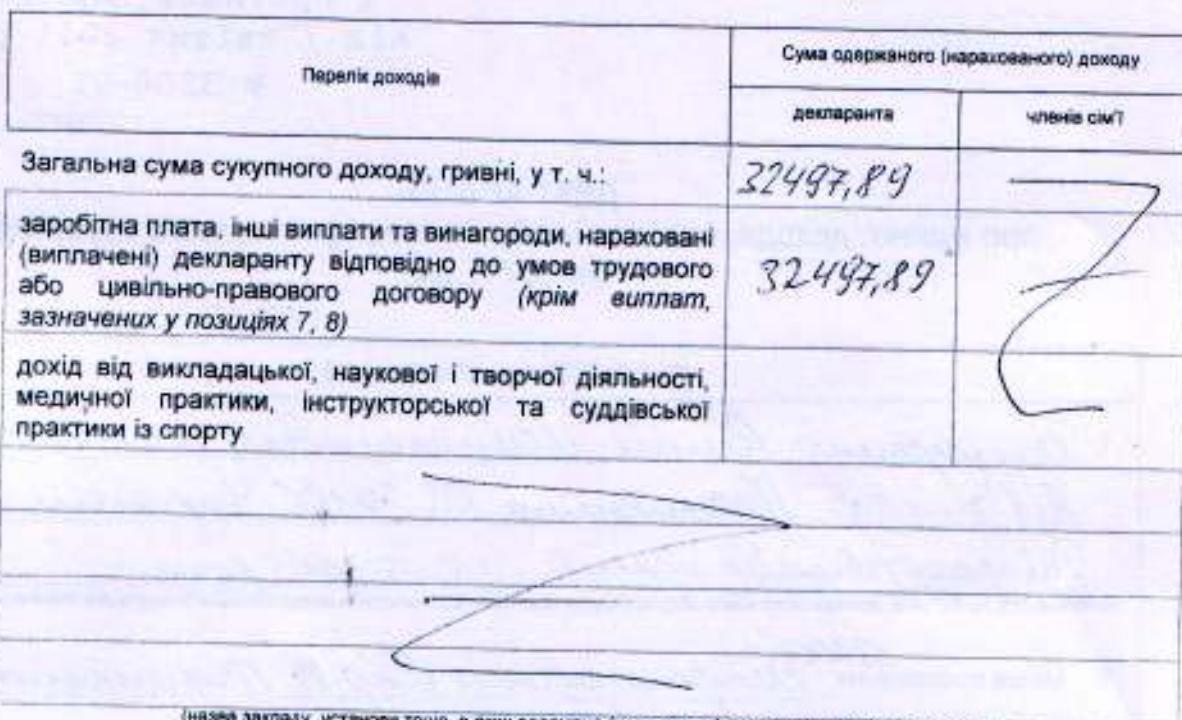 Перелік доходів
Сума одержаного (нарахованого) доходу
декларанта
членів сім'ї
Загальна сума сукупного доходу, гривні, у т. ч.:
32497,89
заробітна плата, інші виплати та винагороди, нараховані
(виплачені) декларанту відповідно до умов трудового
або цивільно-правового договору (крім виплат,
зазначених у позиціях 7, 8)
32497,89
дохід від викладацької, наукової і творчої діяльності,
медичної практики, інструкторської та суддівської
практики із спорту
(назва закладу, установи тощо, в яких